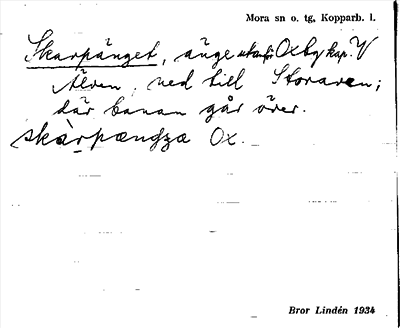 Mora sn o. tg, Kopparb. l.
Skarpänget, änge utanför Oxby kap. V
Älven, ned till Storaren;
där banan går över.
skàrpænʤa Ox.
Bror Lindén 1934